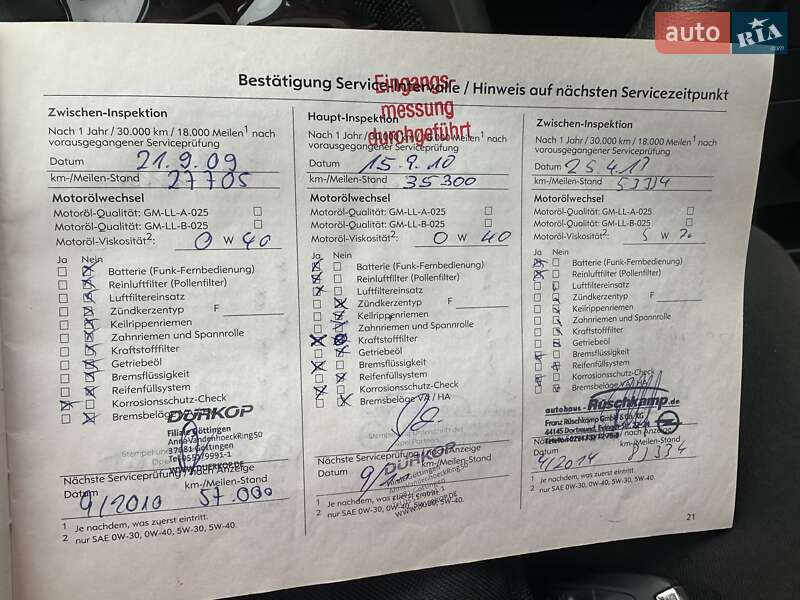 auto RIA.com
Bestätigung Service-Intervalle / Hinweis auf nächsten Servicezeitpunkt
Eingangs-
messung
durchgeführt
Zwischen-Inspektion
Nach 1 Jahr / 30.000 km / 18.000 Meilen1 nach
vorausgegangener Serviceprüfung
Datum 21.9.09
km-/Meilen-Stand 27705
Motorölwechsel
Motoröl-Qualität: GM-LL-A-025
Motoröl-Qualität: GM-LL-B-025
Motoröl-Viskosität2: 0 W 40
Ja Nein
Batterie (Funk-Fernbedienung)
Reinluftfilter (Pollenfilter)
Luftfiltereinsatz
Zündkerzentyp F
Keilrippenriemen
Zahnriemen und Spannrolle
Kraftstofffilter
Getriebeöl
Bremsflüssigkeit
Reifenfüllsystem
Korrosionsschutz-Check
Bremsbeläge
DÜRKOP
Filiale Göttingen
Anna-Vandenhoeck-Ring 50
37081 Göttingen
WWW.DUERKOP.DE
Nächste Serviceprüfung nach Anzeige
Datum km-/Meilen-Stand
9/2010 57.000
1 Je nachdem, was zuerst eintritt.
2 nur SAE 0W-30, 0W-40, 5W-30, 5W-40.
Haupt-Inspektion
Nach 1 Jahr / 30.000 km / 18.000 Meilen1 nach
vorausgegangener Serviceprüfung
Datum 15.9.10
km-/Meilen-Stand 35300
Motorölwechsel
Motoröl-Qualität: GM-LL-A-025
Motoröl-Qualität: GM-LL-B-025
Motoröl-Viskosität2: 0 W 40
Ja Nein
Batterie (Funk-Fernbedienung)
Reinluftfilter (Pollenfilter)
Luftfiltereinsatz
Zündkerzentyp F
Keilrippenriemen
Zahnriemen und Spannrolle
Kraftstofffilter
Getriebeöl
Bremsflüssigkeit
Reifenfüllsystem
Korrosionsschutz-Check
Bremsbeläge VA / HA
DÜRKOP
Nächste Serviceprüfung nach Anzeige
Datum km-/Meilen-Stand
1 Je nachdem, was zuerst eintritt.
2 nur SAE 0W-30, 0W-40, 5W-30, 5W-40.
Zwischen-Inspektion
Nach 1 Jahr / 30.000 km / 18.000 Meilen1 nach
vorausgegangener Serviceprüfung
Datum 25.4.13
km-/Meilen-Stand 53334
Motorölwechsel
Motoröl-Qualität: GM-LL-A-025
Motoröl-Qualität: GM-LL-B-025
Motoröl-Viskosität2: 5 W 30
Ja Nein
Batterie (Funk-Fernbedienung)
Reinluftfilter (Pollenfilter)
Luftfiltereinsatz
Zündkerzentyp F
Keilrippenriemen
Zahnriemen und Spannrolle
Kraftstofffilter
Getriebeöl
Bremsflüssigkeit
Reifenfüllsystem
Korrosionsschutz-Check
Bremsbeläge
autohaus - Rüschkamp.de
Franz Rüschkamp GmbH & Co. KG
44145 Dortmund
Nächste Serviceprüfung nach Anzeige
Datum km-/Meilen-Stand
4/2014 81334
1 Je nachdem, was zuerst eintritt.
2 nur SAE 0W-30, 0W-40, 5W-30, 5W-40.
21